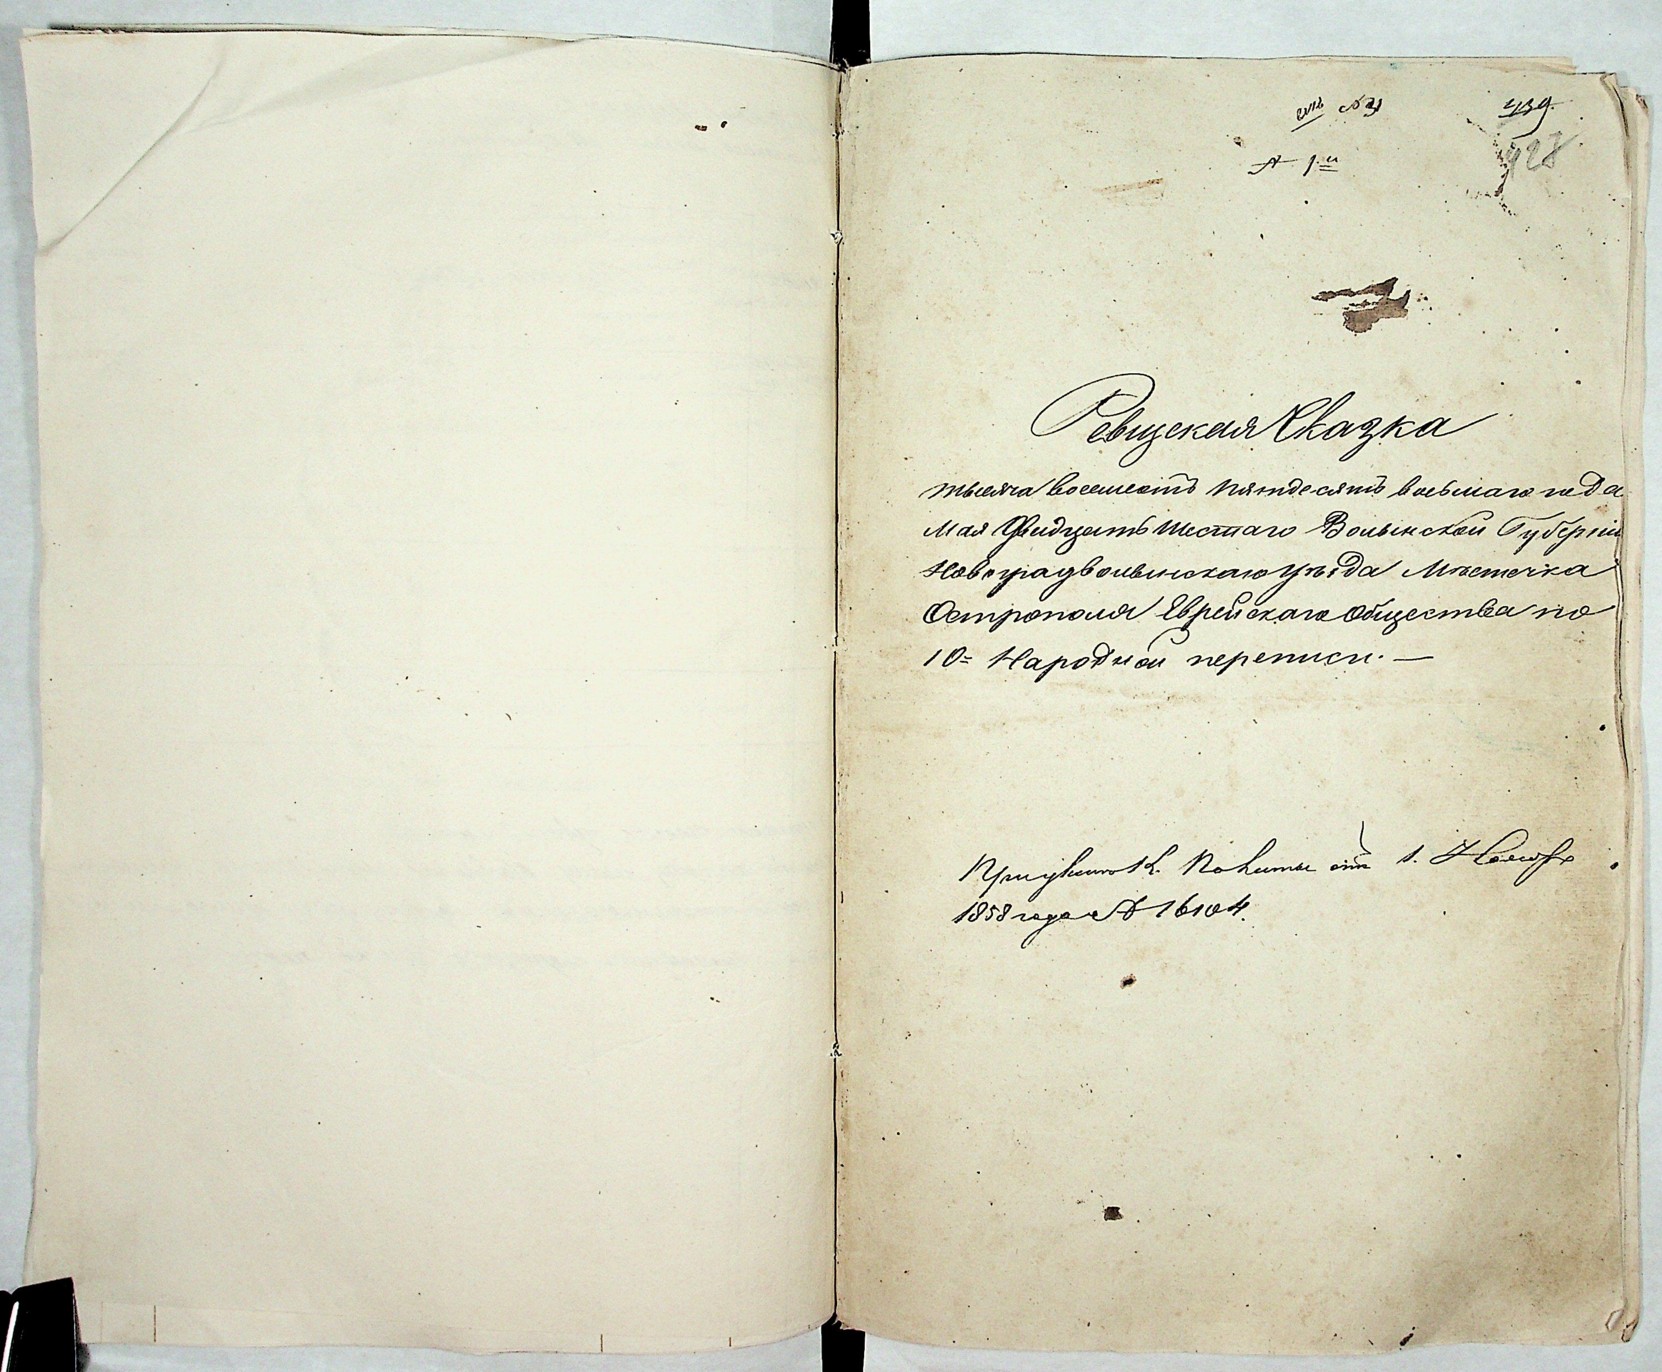 439
428
№ 1й
Ревизская Сказка
тысяча восемсотъ пятьдесятъ восьмаго года
Мая двадцать шестаго Волынской Губерніи
Новоградволынскаго уѣзда Мѣстечка
Острополя Еврейскаго Общества по
10= Народной переписи. —
отъ 1.
1858 года № 16104.